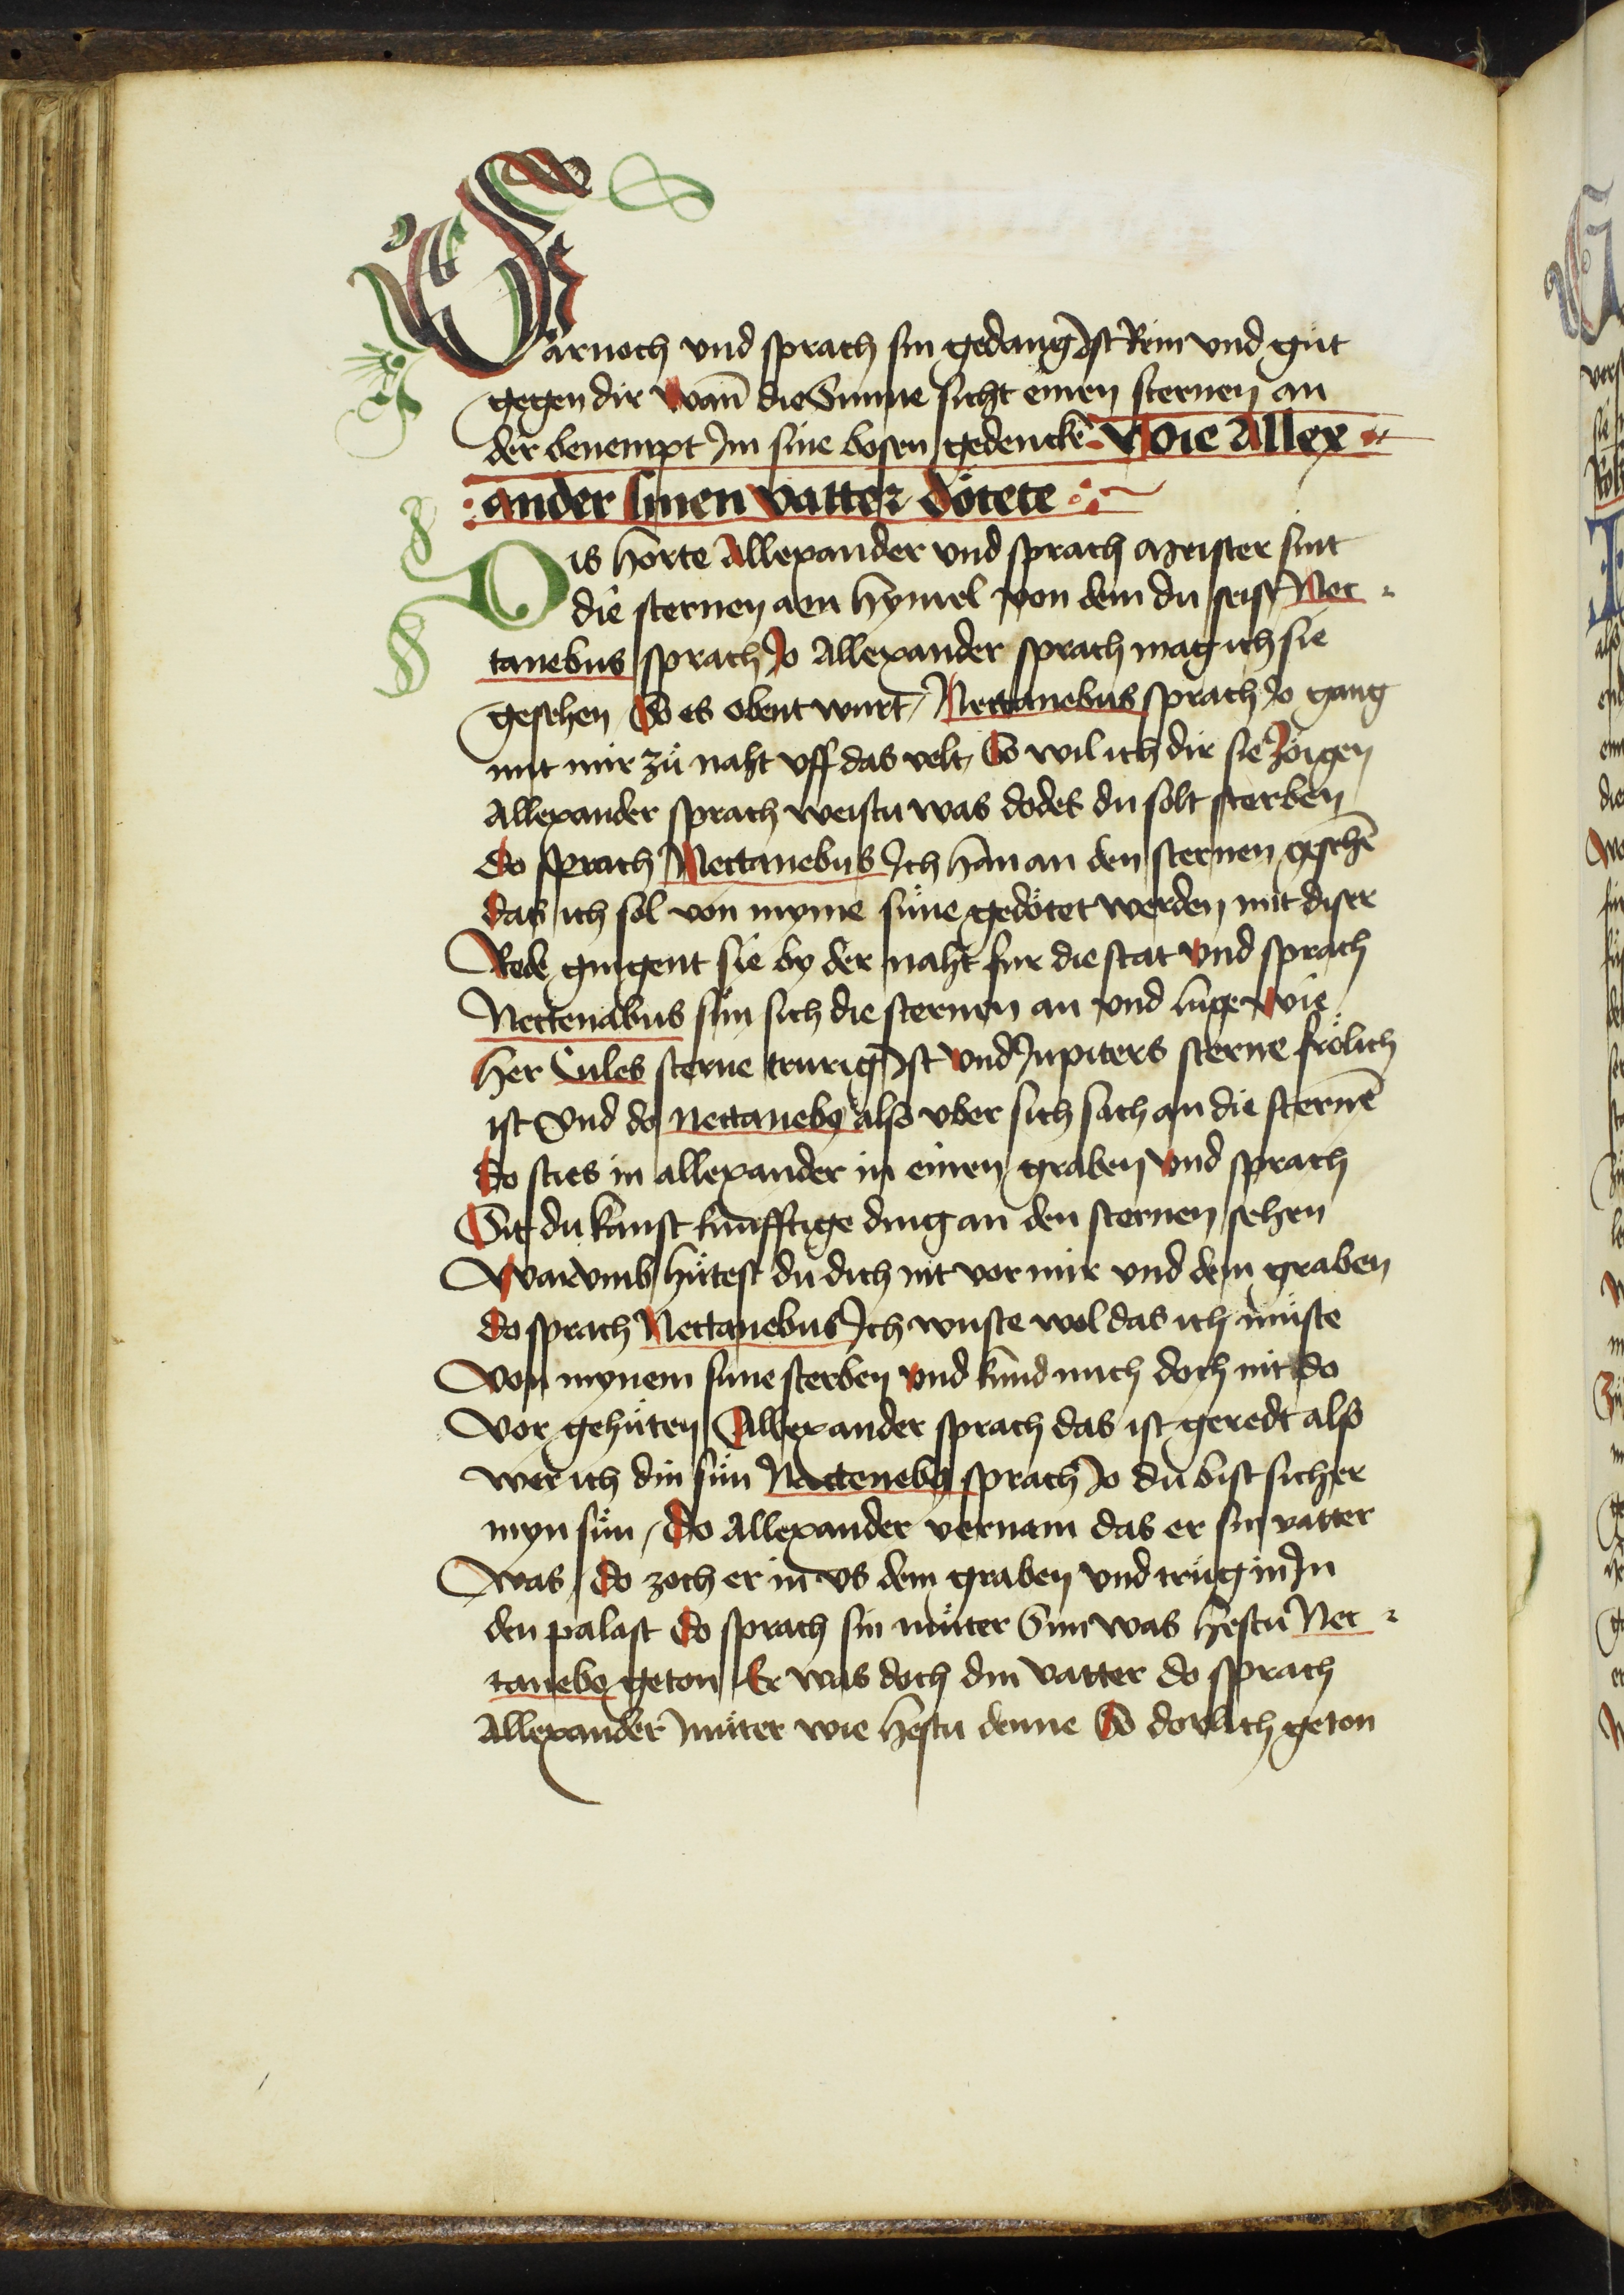 Darnoch vnd sprach sin gedang Ist Rein vnd gůt
gegen dir Wan̄ die Sunne sicht einen sternen an
der benempt Im sine bosen gedenckē Wie Allex
ander sinen vatter dötete
Dis horte Allexander vnd sprach meister sint
die sternen am hymel von dem du seist Nec
tanebus sprach Jo Allexander sprach mag ich sie
gesehen So es obent wurt / Nectanebus sprach Jo gang
mit mir zů naht vff das velt / So wil ich dir sie zöigen
Allexander sprach weistu was dodes du solt sterben
do sprach Nectanebus Ich han an den sternen gesehē
das ich sol von myme sůne gedötet werden mit diser
Rede gingent sie by der naht fur die stat vnd sprach
Nectenabus sůn sich die sternen an vnd luge wie
her Cules sterne trurig Ist vnd Jupiters sterne frölich
ist Vnd do nectaneb9 also vber sich sach an die sternē
do sties in allexander in einen graben vnd sprach
Sit du kanst kunfftige ding an den sternen sehen
Warvmb hůtest du dich nit vor mir vnd dem graben
do sprach Nectanebus Ich wuste wol das ich můste
Von mynem sune sterben vnd kund mich doch nit do
Vor gehůten Allexander sprach das ist geredt also
wer ich din sůn Necteneb9 sprach Jo du bist sicher
myn sůn / do Allexander vernam das er sin vatter
Was / do zoch er in vs dem graben vnd trůg in In
den palast do sprach sin můter Sun was hestu Nec
taneb9 geton Er was doch din vatter do sprach
Allexander můter wie hestu denne So dorlich geton